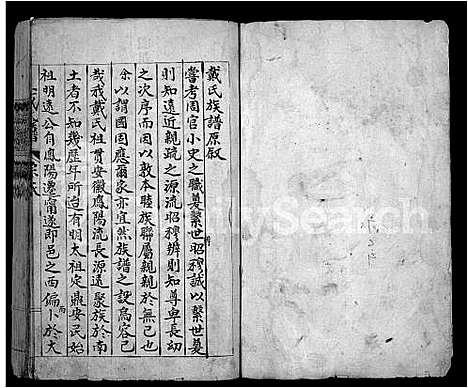 戴氏族譜原叙
嘗考周官小史之職奠繫世昭穆誠以繫世奠
則知遠近親疏之源流昭穆辨則知尊卑長幼
之次序而因以敦本睦族聯屬親親於無已也
余以謂國固應爾家亦宜然族譜之設烏容已
哉戒戴氏祖貫安徽鳳陽流長源遠聚族於南
土者不知幾歷年所迨有明太祖定鼎安民始
祖明遠公自鳳陽遷甯遂即邑之西偏卜於太
FamilySearch